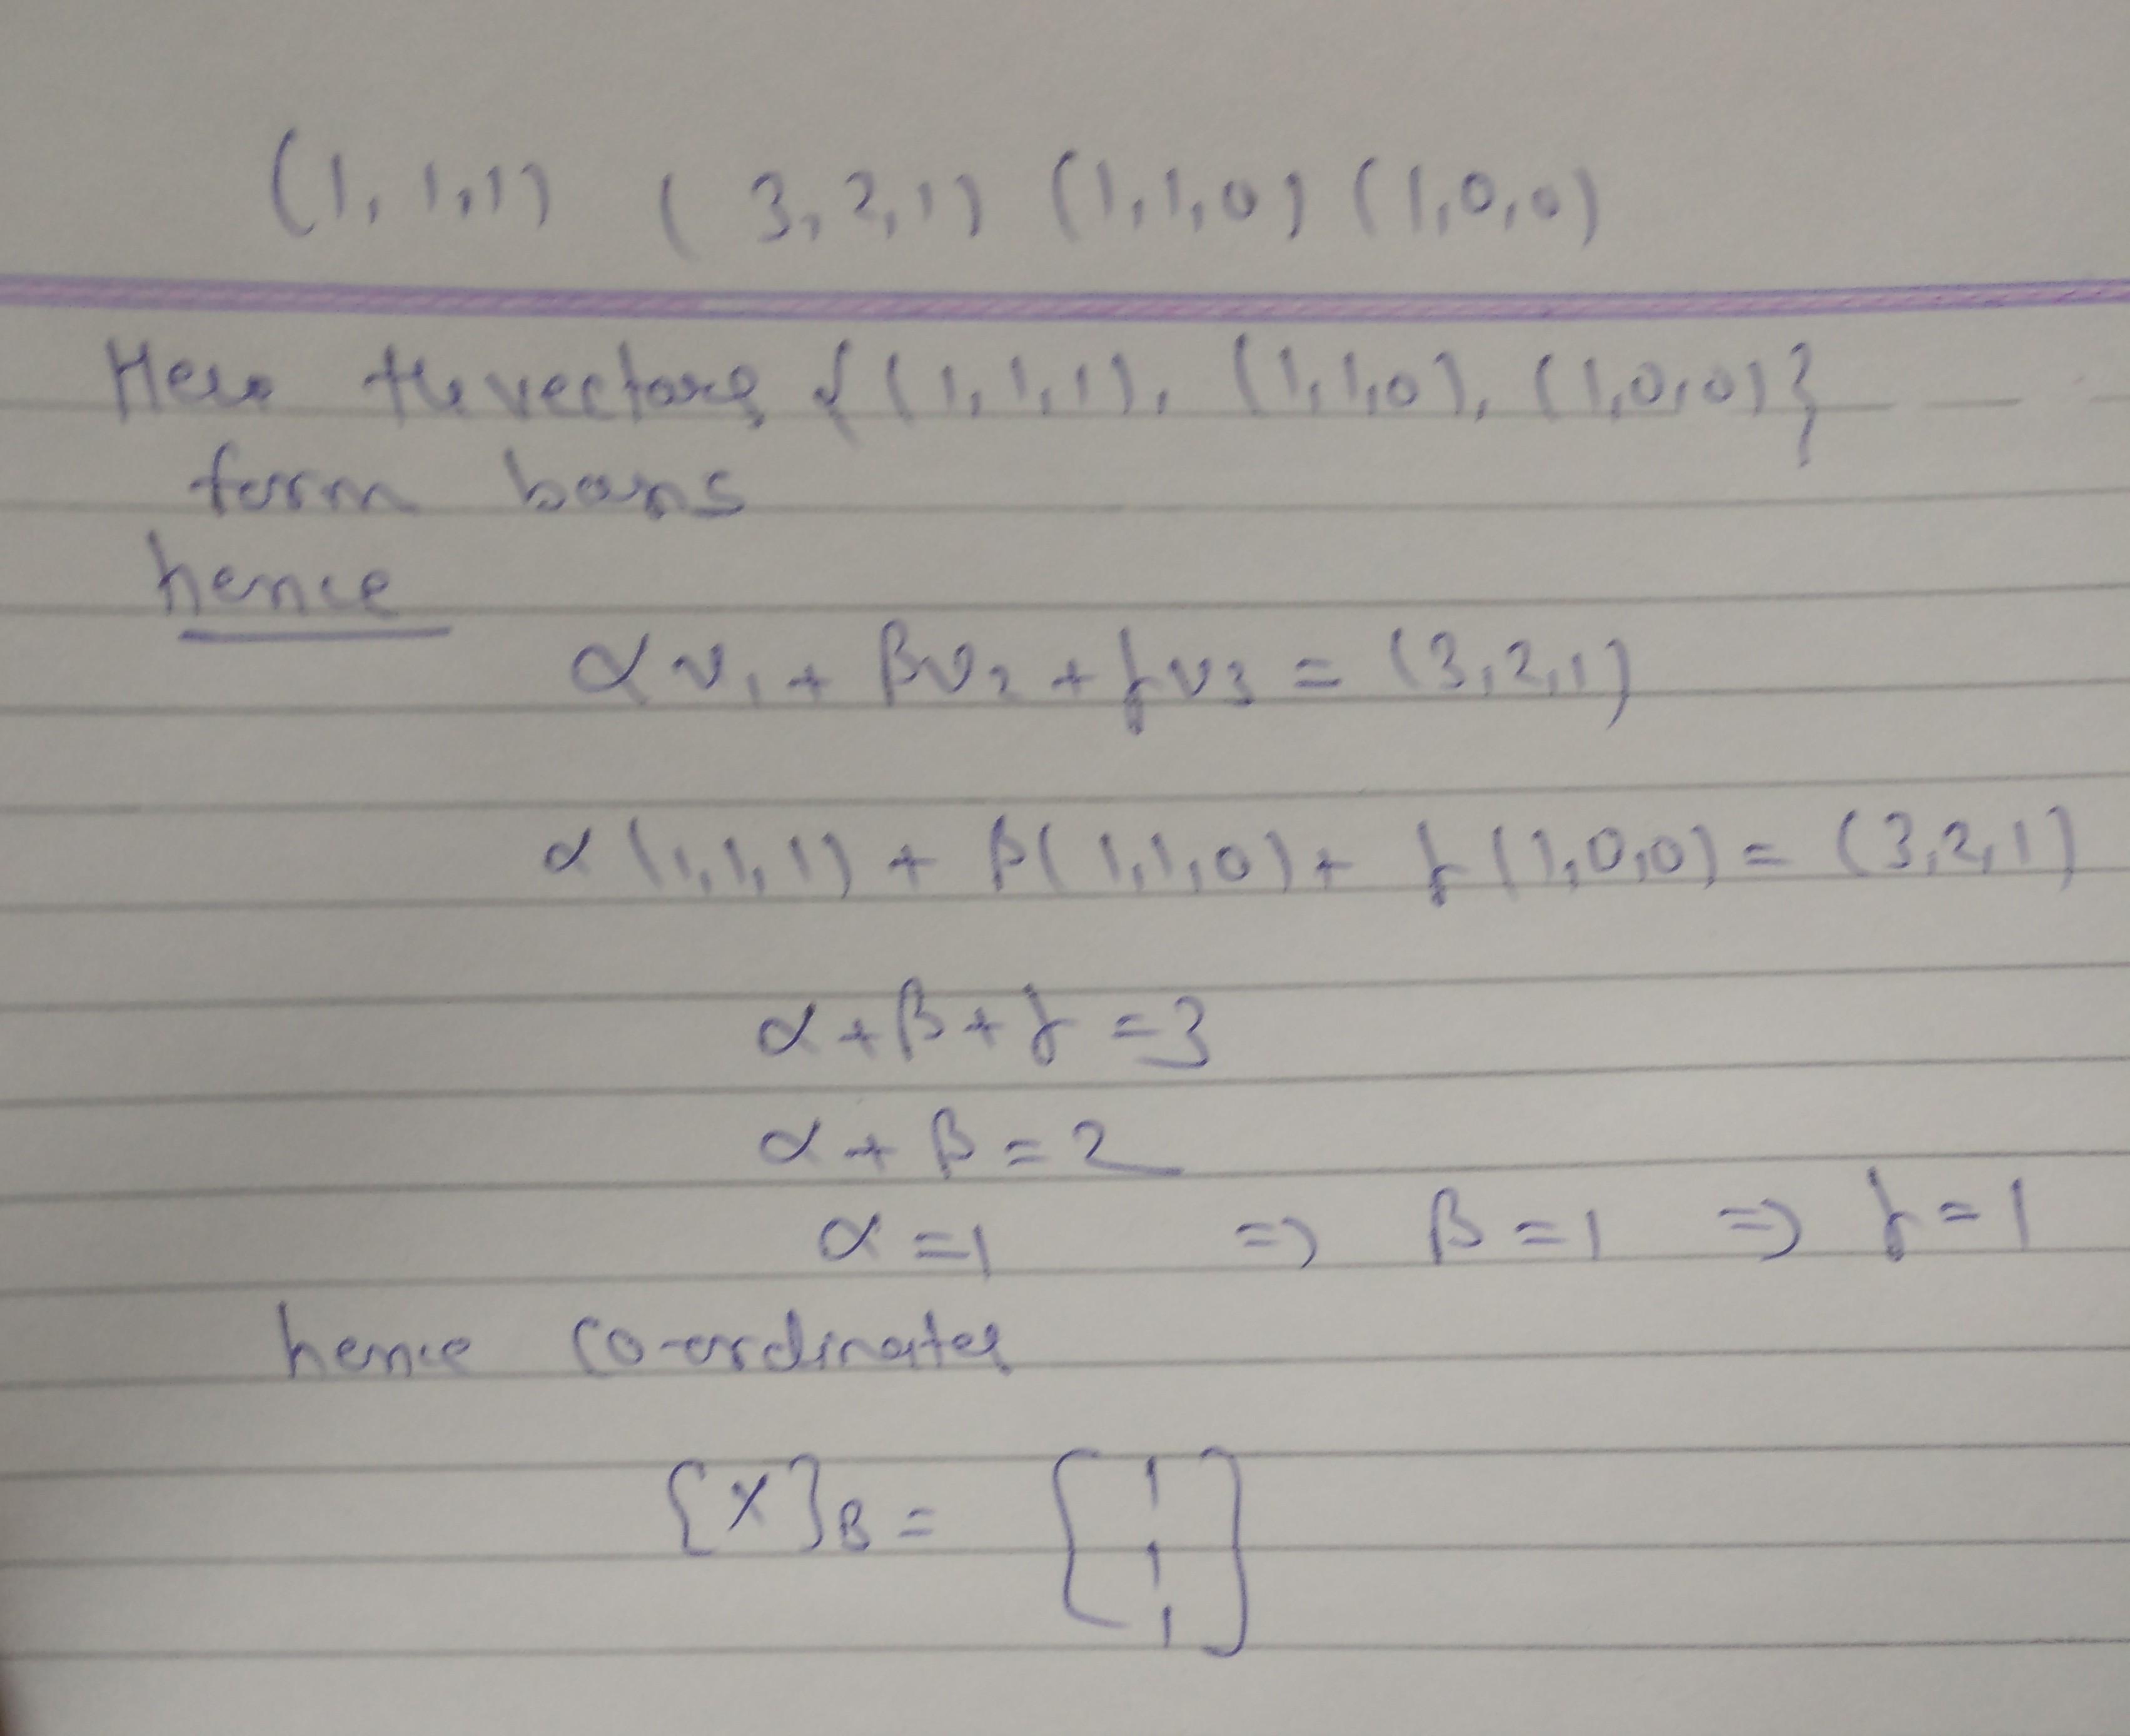 (1, 1, 1) (3, 2, 1) (1, 1, 0) (1, 0, 0)
Here the vectors {(1, 1, 1), (1, 1, 0), (1, 0, 0)}
form basis
hence
αv₁ + βv₂ + γv₃ = (3, 2, 1)
α(1, 1, 1) + β(1, 1, 0) + γ(1, 0, 0) = (3, 2, 1)
α + β + γ = 3
α + β = 2
α = 1 ⇒ β = 1 ⇒ γ = 1
hence co-ordinates
[X]B = [1
1
1]